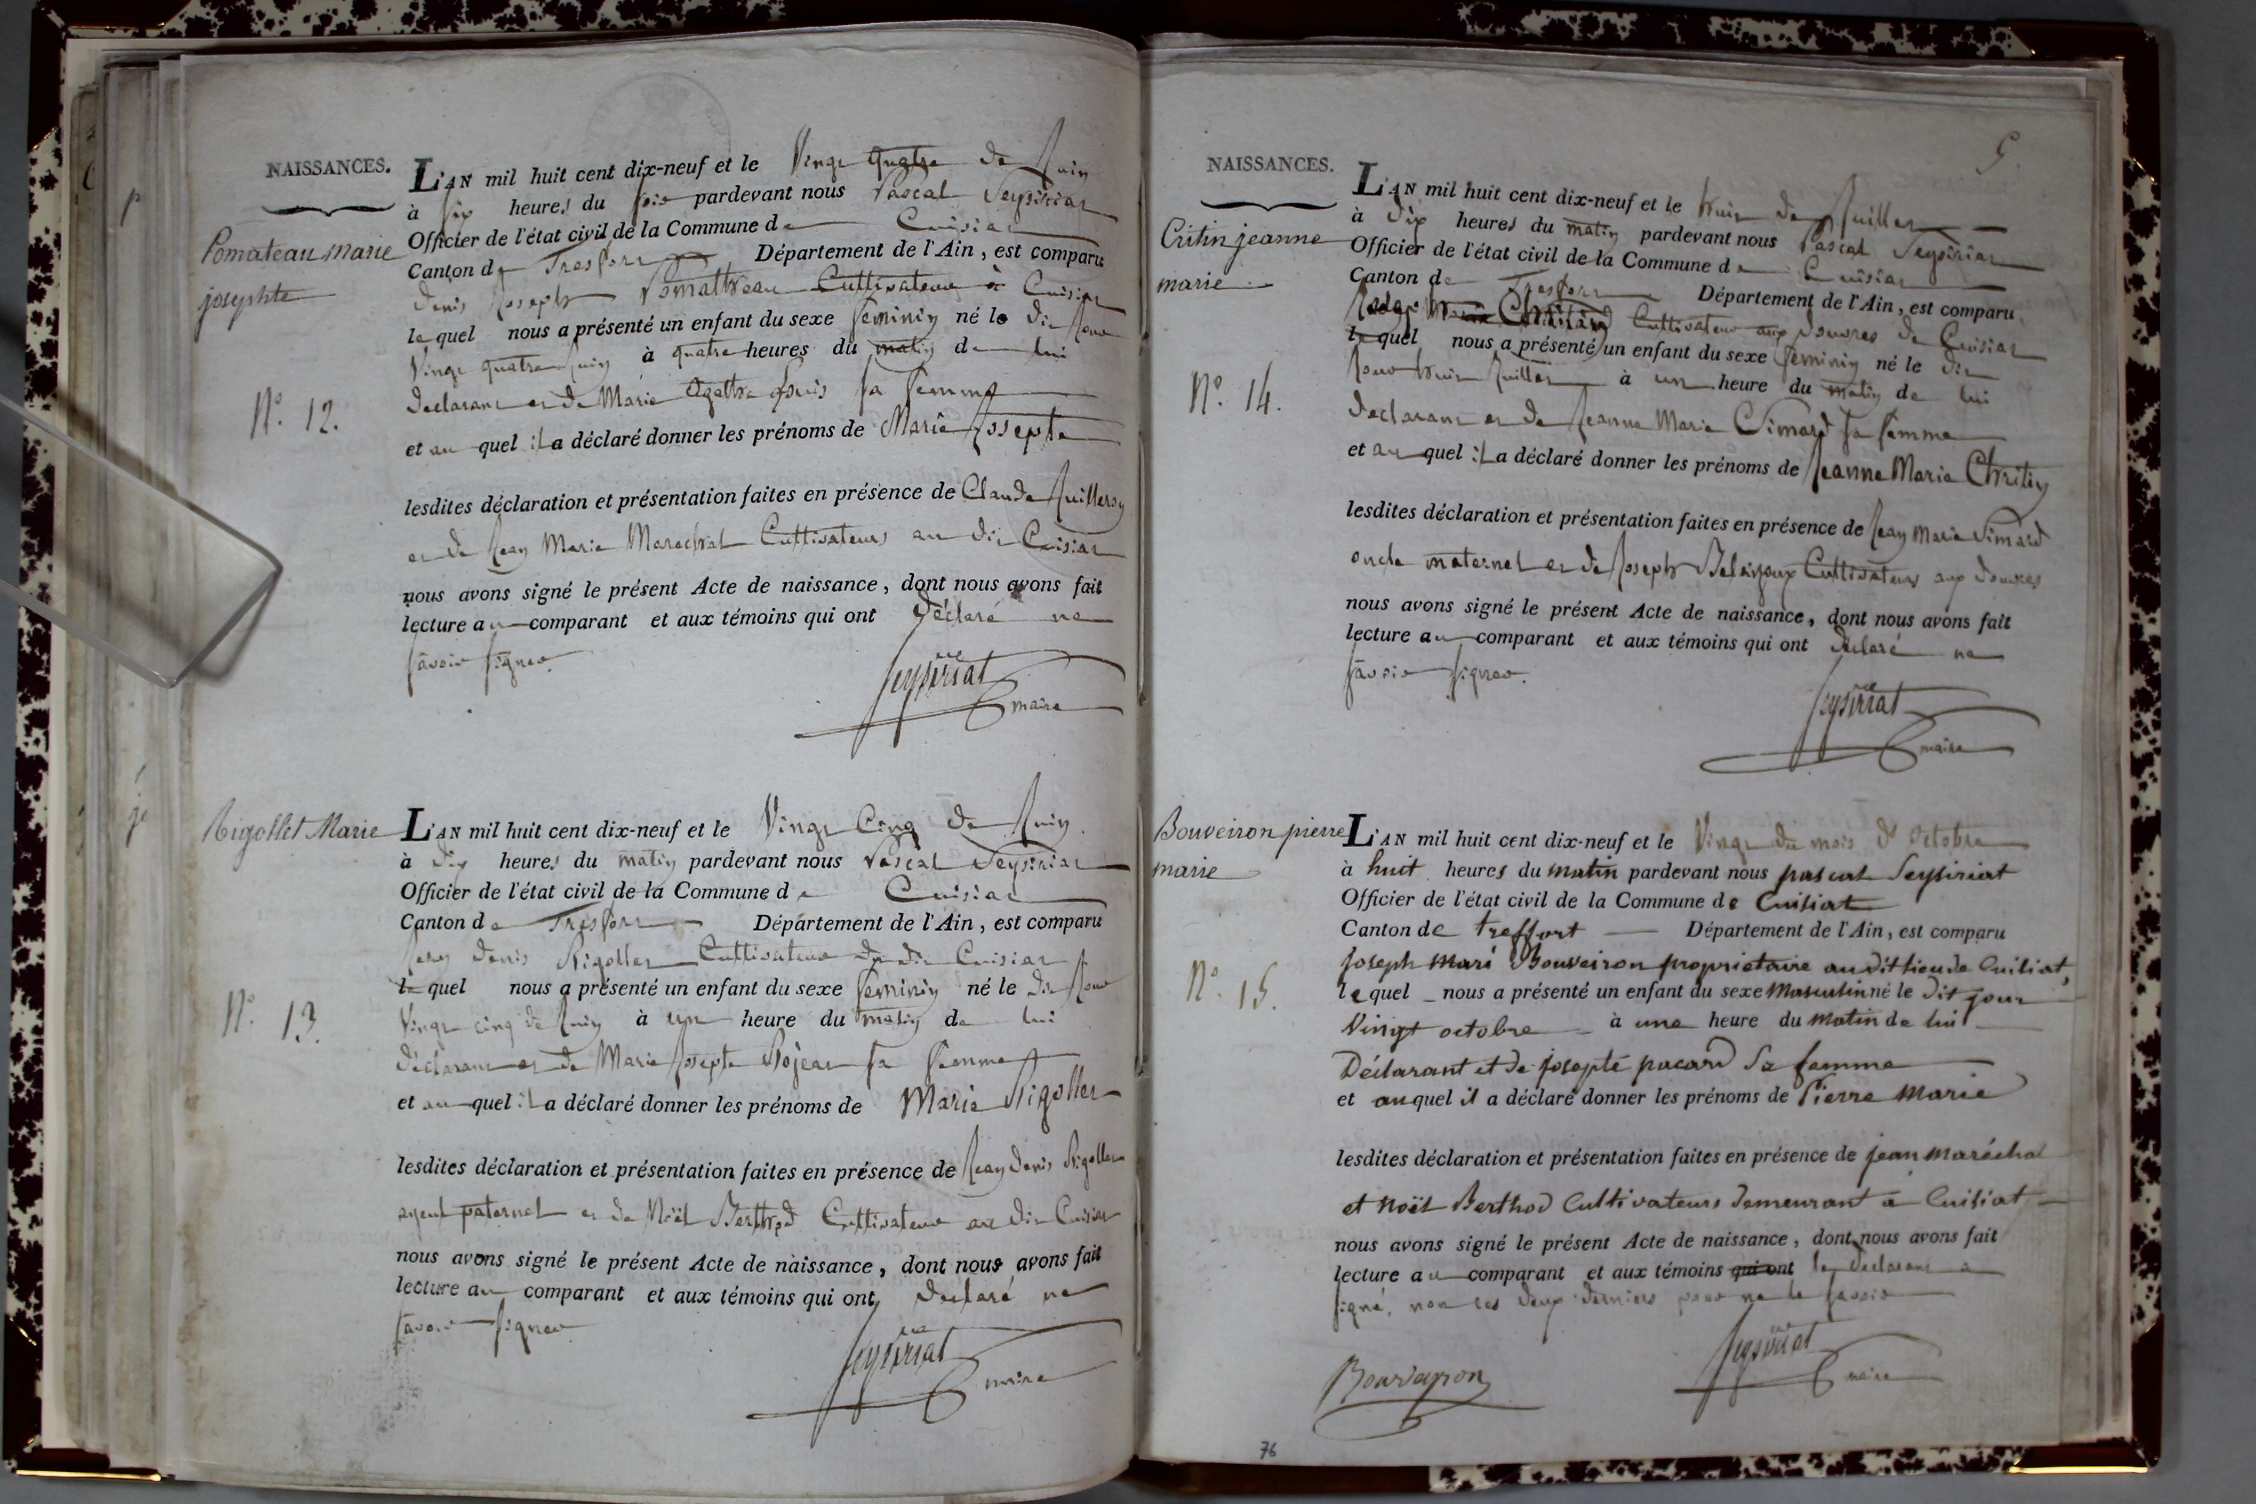 NAISSANCES.
Pomateau Marie
josephte
N.º 12.
L'AN mil huit cent dix-neuf et le Vingt quatre de Juin
à six heures du soir pardevant nous Pascal Seysiriat
Officier de l'état civil de la Commune de Cuisiat
Canton de Tresfort Département de l'Ain, est comparu
denis Joseph Pomatheau Cultivateur à Cuisiat
lequel nous a présenté un enfant du sexe feminin né le dit Jour
Vingt quatre Juin à quatre heures du matin de lui
declarant et de Marie Agathe sa femme
et au quel il a déclaré donner les prénoms de Marie Josepte
lesdites déclaration et présentation faites en présence de Claude Juilleron
et de Jean Marie Marechal Cultivateurs au dit Cuisiat
nous avons signé le présent Acte de naissance, dont nous avons fait
lecture au comparant et aux témoins qui ont déclaré ne
savoir signer.
Seysiriat
maire
Rigollet Marie
N.º 13.
L'AN mil huit cent dix-neuf et le Vingt Cinq de Juin.
à dix heures du matin pardevant nous Pascal Seysiriat
Officier de l'état civil de la Commune de Cuisiat
Canton de Tresfort Département de l'Ain, est comparu
denis Rigollet Cultivateur du dit Cuisiat
lequel nous a présenté un enfant du sexe feminin né le dit Jour
Vingt cinq de Juin à une heure du matin de lui
déclarant et de Marie Josepte Pojeat sa femme
et au quel il a déclaré donner les prénoms de Marie Rigollet
lesdites déclaration et présentation faites en présence de Jean denis Rigollet
ayeul paternel et de Noël Berthod Cultivateur au dit Cuisiat
nous avons signé le présent Acte de naissance, dont nous avons fait
lecture au comparant et aux témoins qui ont declaré ne
savoir signer
Seysiriat
maire
5.
NAISSANCES.
Critin jeanne
marie
N.º 14.
L'AN mil huit cent dix-neuf et le huit de Juillet
à dix heures du matin pardevant nous Pascal Seysiriat
Officier de l'état civil de la Commune de Cuisiat
Canton de Tresfort Département de l'Ain, est comparu
Cultivateur aux douvres de Cuisiat
lequel nous a présenté un enfant du sexe feminin né le dit
Jour huit Juillet à une heure du matin de lui
declarant et de Jeanne Marie Simard sa femme
et au quel il a déclaré donner les prénoms de Jeanne Marie Chritin
lesdites déclaration et présentation faites en présence de Jean Marie Simard
oncle maternel et de Joseph Cultivateurs aux douvres
nous avons signé le présent Acte de naissance, dont nous avons fait
lecture au comparant et aux témoins qui ont déclaré ne
savoir signer.
Seysiriat
maire
Bouveiron pierre
marie
N.º 15.
L'AN mil huit cent dix-neuf et le Vingt du mois d'octobre
à huit heures du matin pardevant nous pascal Seysiriat
Officier de l'état civil de la Commune de Cuisiat
Canton de treffort Département de l'Ain, est comparu
Joseph Marie Bouveiron proprietaire au dit lieu de Cuisiat,
lequel nous a présenté un enfant du sexe Masculin né le dit jour
Vingt octobre à une heure du Matin de lui
Déclarant et de josepte pacard sa femme
et auquel il a déclaré donner les prénoms de Pierre Marie
lesdites déclaration et présentation faites en présence de jean maréchal
et Noël Berthod Cultivateurs demeurant à Cuisiat
nous avons signé le présent Acte de naissance, dont nous avons fait
lecture au comparant et aux témoins qui ont le declarant a
signé, non les deux derniers pour ne le savoir
Bouveyron
Seysiriat
maire
76